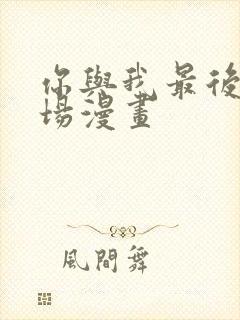 你與我最後
場漫畫
風間舞